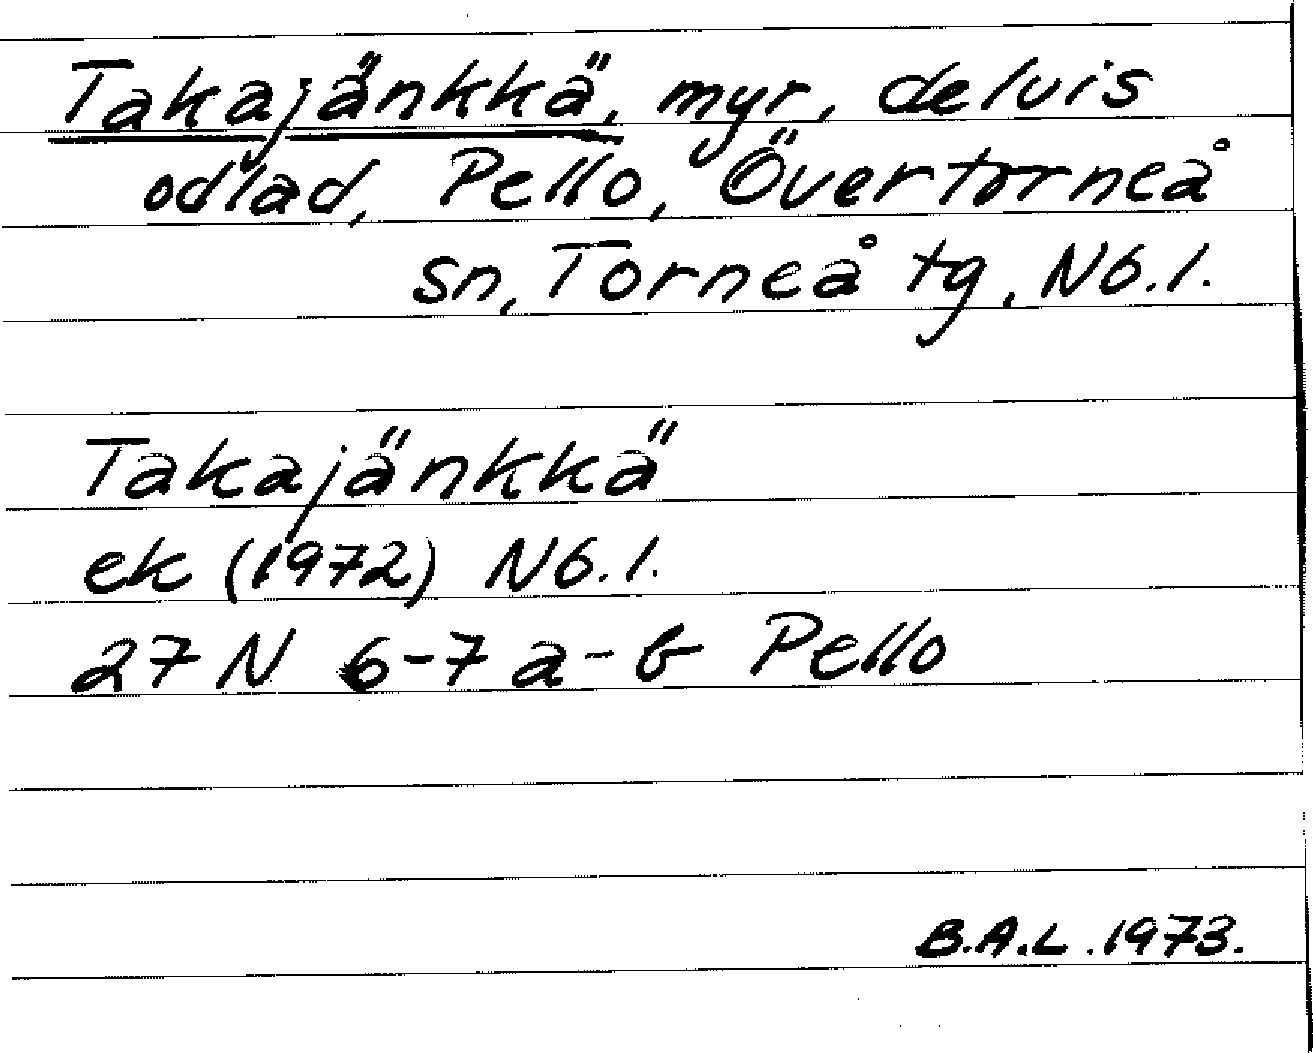 Takajänkkä, myr, delvis
odlad, Pello, Övertorneå
sn, Torneå tg, Nb.l.
Takajänkkä
ek (1972) Nb.l.
27 N 6-7 a-b Pello
B.A.L. 1973.